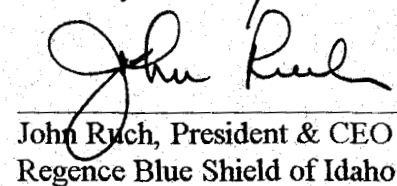 John Ruch
John Ruch, President & CEO
Regence Blue Shield of Idaho